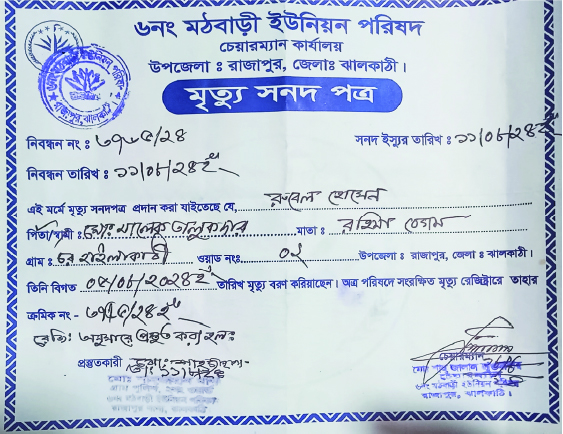 ৬নং মঠবাড়ী ইউনিয়ন পরিষদ
চেয়ারম্যান কার্যালয়
উপজেলা : রাজাপুর, জেলাঃ ঝালকাঠী।
মৃত্যু সনদ পত্র
নিবন্ধন নং : সনদ ইস্যুর তারিখ : ১১/০৮/২৪ইং
নিবন্ধন তারিখ : ১১/০৮/২৪ইং
এই মর্মে মৃত্যু সনদপত্র প্রদান করা যাইতেছে যে, রুবেল হোসেন
পিতা/স্বামী : মোঃ খালেক তালুকদার মাতা : রহিমা বেগম
গ্রাম : চর হাইলাকাঠী ওয়াড নংঃ ০২ উপজেলা : রাজাপুর, জেলা : ঝালকাঠী।
তিনি বিগত ০৫/০৮/২০২৪ইং তারিখ মৃত্যু বরণ করিয়াছেন। অত্র পরিষদে সংরক্ষিত মৃত্যু রেজিষ্ট্রারে তাহার
ক্রমিক নং -
রেজিঃ অনুসারে প্রস্তুত করা হলঃ
প্রস্তুতকারী
চেয়ারম্যান
৬নং মঠবাড়ী ইউনিয়ন
রাজাপুর, ঝালকাঠি।